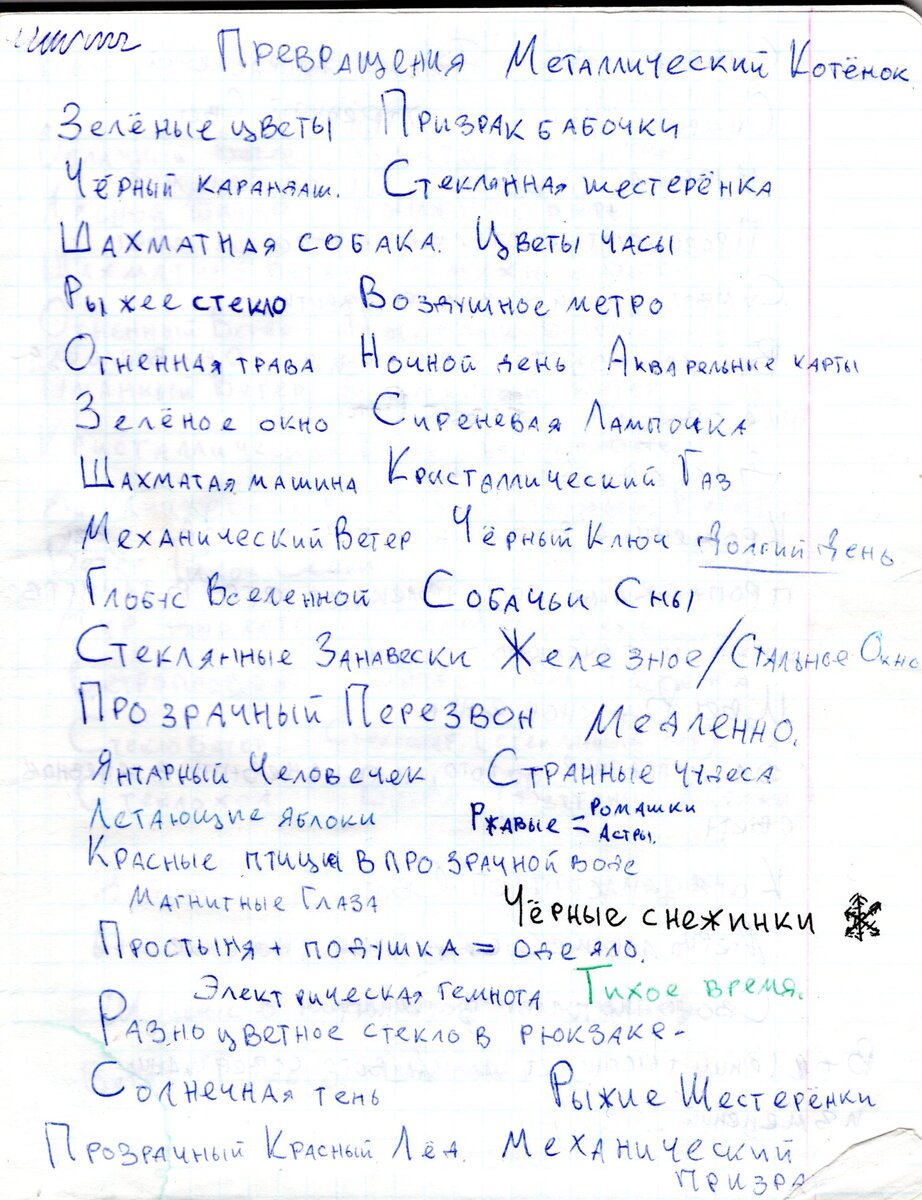 Превращения Металлический Котёнок
Зелёные цветы Призрак бабочки
Чёрный карандаш. Стеклянная шестерёнка
Шахматная собака. Цветы часы
Рыжее стекло Воздушное метро
Огненная трава Ночной день Акварельные карты
Зелёное окно Сиреневая Лампочка
Шахматая машина Кристаллический Газ
Механический Ветер Чёрный Ключ Долгий День
Глобус Вселенной Собачьи Сны
Стеклянные Занавески Железное/Стальное Окно
Прозрачный Перезвон Медленно.
Янтарный Человечек Странные чудеса
Летающие яблоки Ржавые = Ромашки
Астры.
Красные птицы в прозрачной воде
Магнитные Глаза Чёрные снежинки
Простыня + подушка = одеяло.
Электрическая темнота Тихое время.
Разноцветное стекло в рюкзаке-
Солнечная тень Рыжие Шестерёнки
Прозрачный Красный Лёд. Механический
Призра